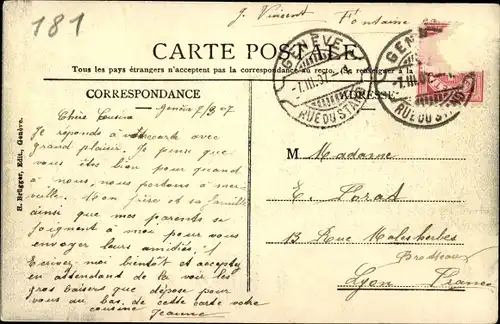 181
J. Vincent Fontaine
CARTE POSTALE
Tous les pays étrangers n'acceptent pas la correspondance au recto. (Se renseigner à la
GENÈVE
1.III.07
RUE DU STAND
GENÈVE
1.III.07
RUE DU STAND
CORRESPONDANCE
ADRESSE
Genève 7/3 07
Chère Cousine
Je réponds à ta carte avec
grand plaisir. Je pense que
vous êtes bien pour quand à
nous, nous portons à mer-
veille. Mon frère et sa famille
ainsi que mes parents se
joignent à moi pour vous
envoyer leurs amitiés,
Ecrivez moi bientôt et acceptez
en attendant de la voir les
gros baisers que dépose pour
vous au bas de cette carte votre
cousine Jeanne
M Madame
E. Forat
13 Rue Malesherbes
Brotteaux
Lyon France
H. Brügger, Edit., Genève.